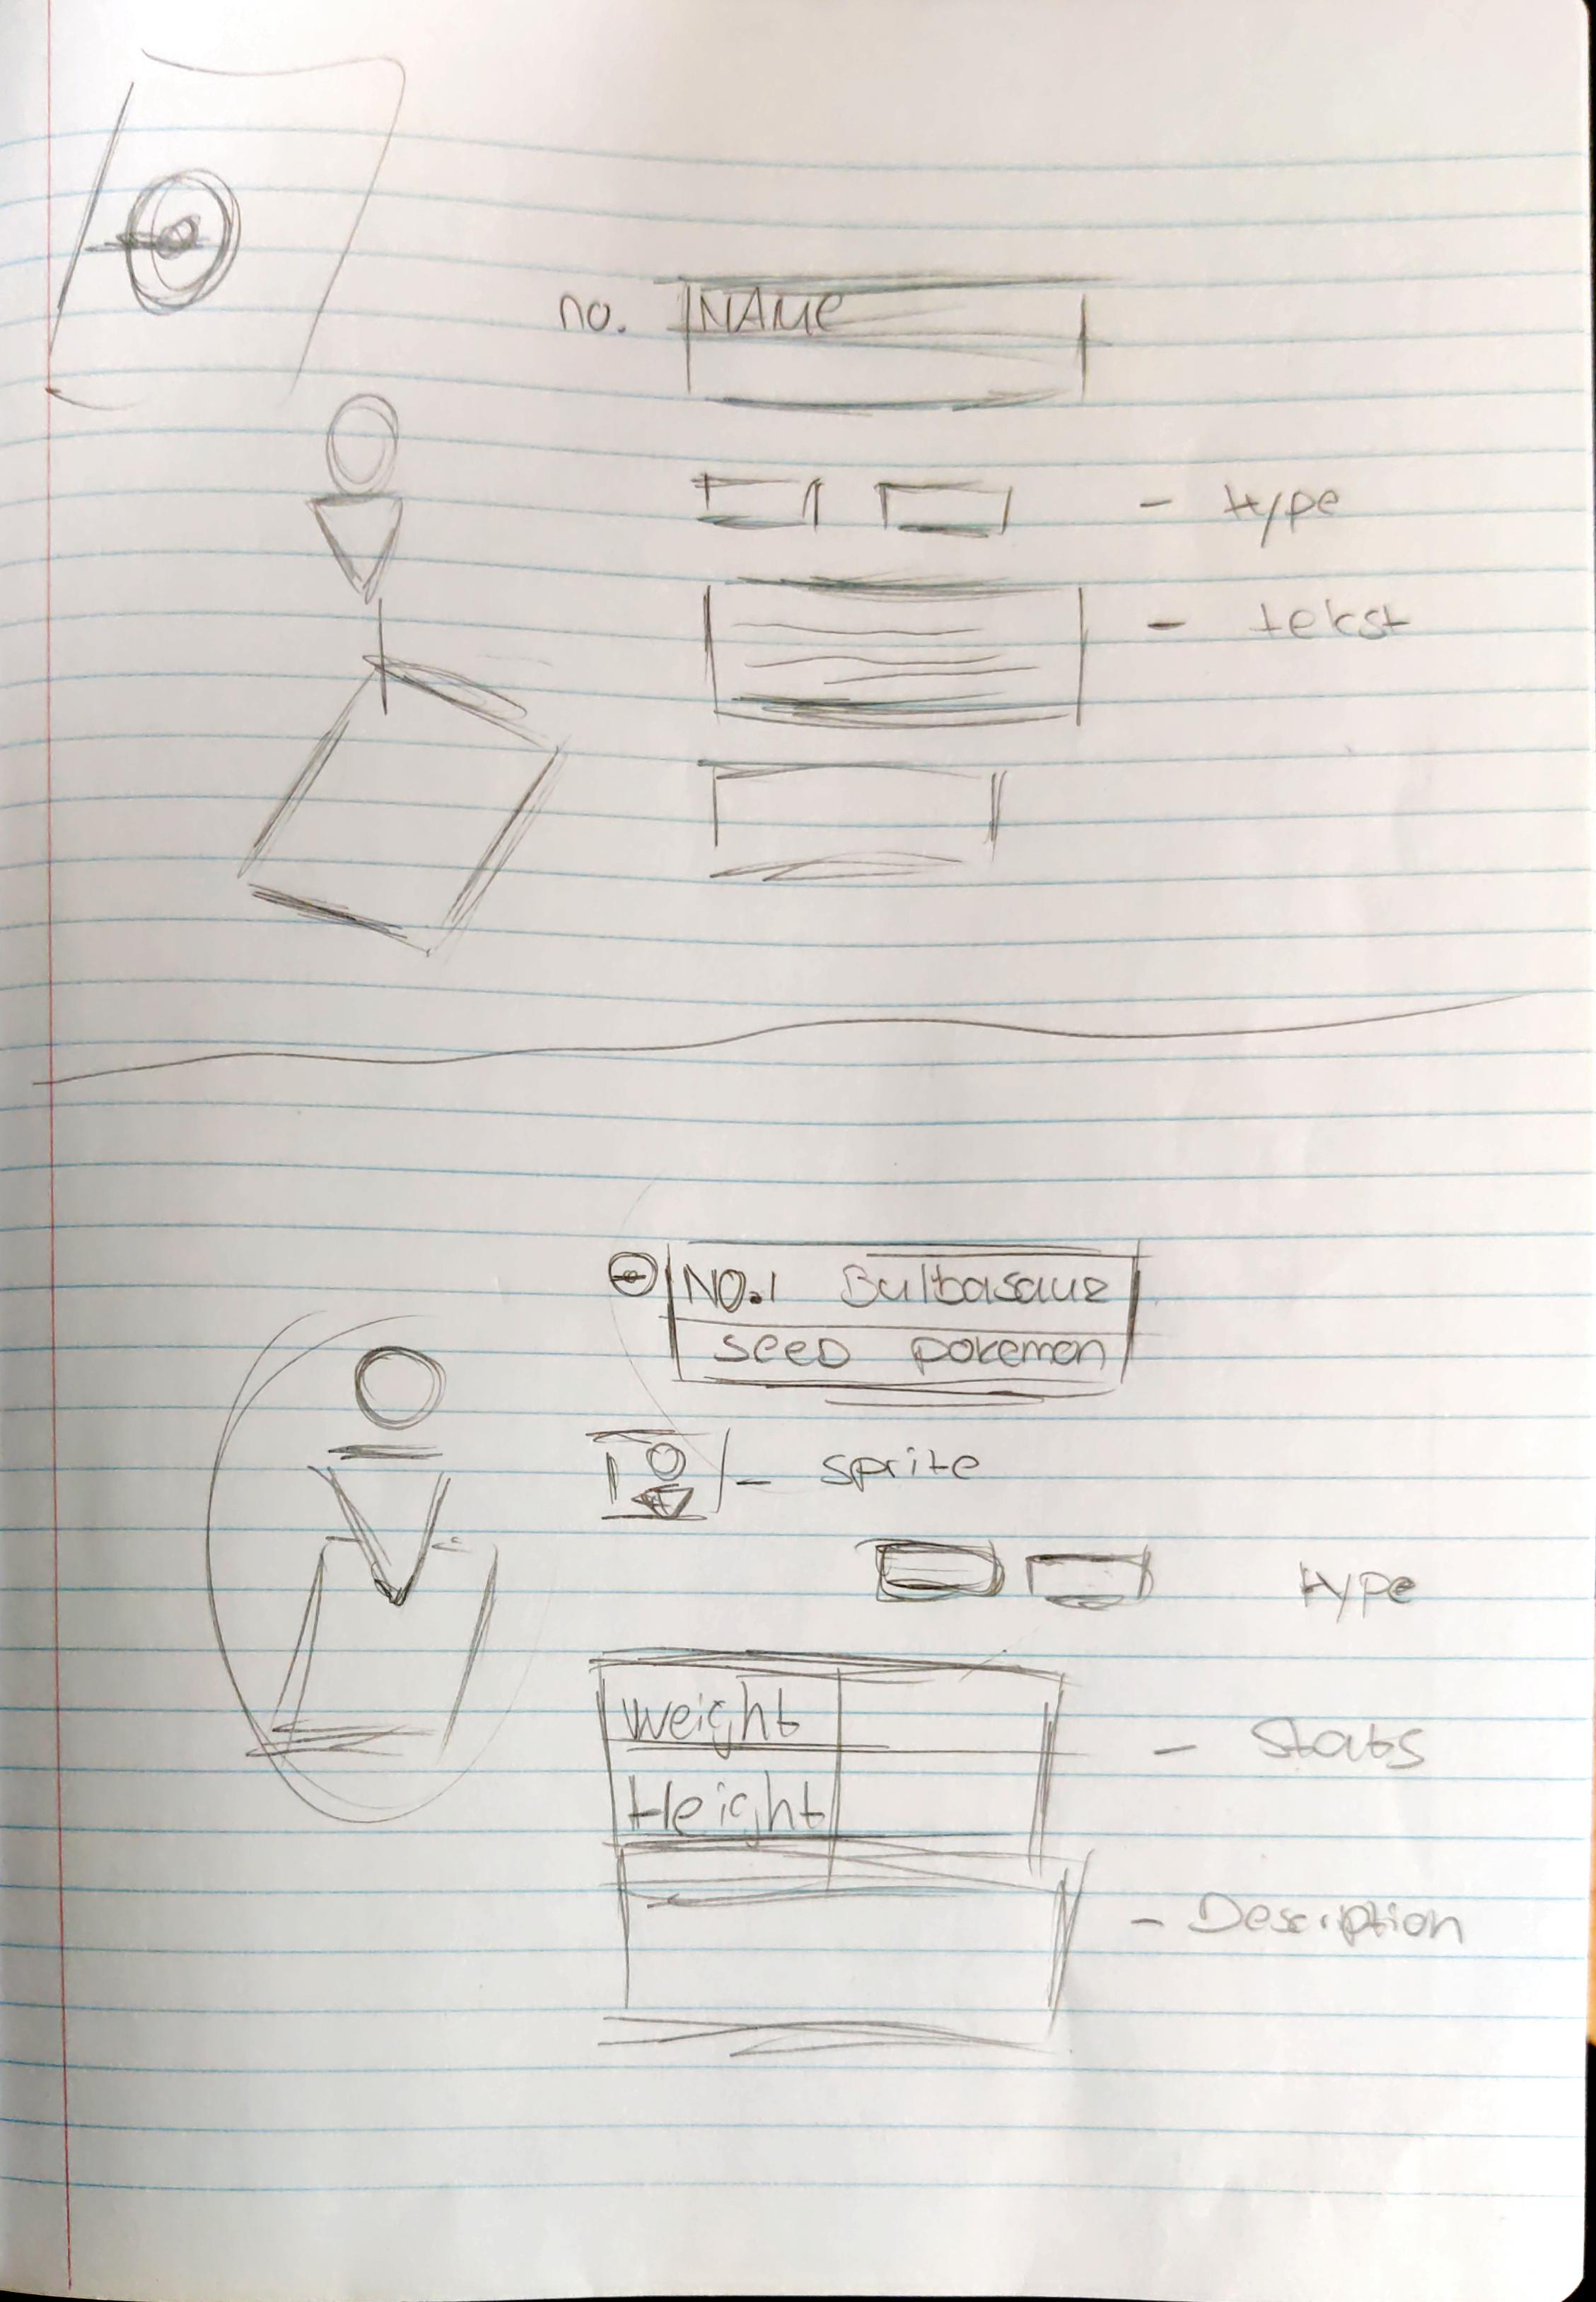 no. NAMe
- type
- tekst
NO.1 Bulbasaur
seeD pokemon
- sprite
type
Weight
- Stats
Height
- Description